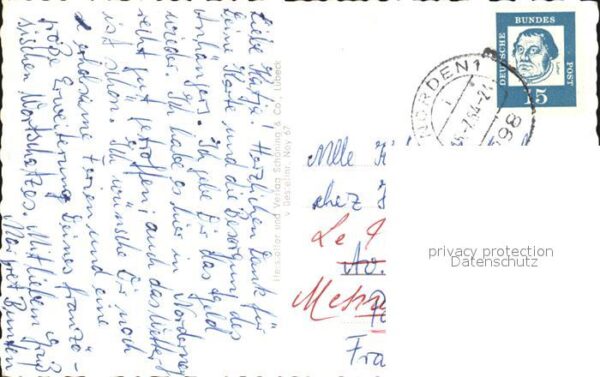 Liebe Katja! Herzlichen Dank für
Deine Karte und die Besorgung des
Anhängers. Ich gebe Dir das Geld
wieder. Ich habe es hier in Norderney
recht gut getroffen; auch das Wetter
ist schön. Ich wünsche Dir noch
erholsame Ferien und eine
große Erweiterung Deines franzö-
sischen Wortschatzes. Mit lieben Grüßen
Hersteller und Verlag Schöning & Co., Lübeck
Ney 67
DEUTSCHE BUNDES POST
15
NORDEN 1
Mlle
chez
Le
Av.
Fra
privacy protection
Datenschutz